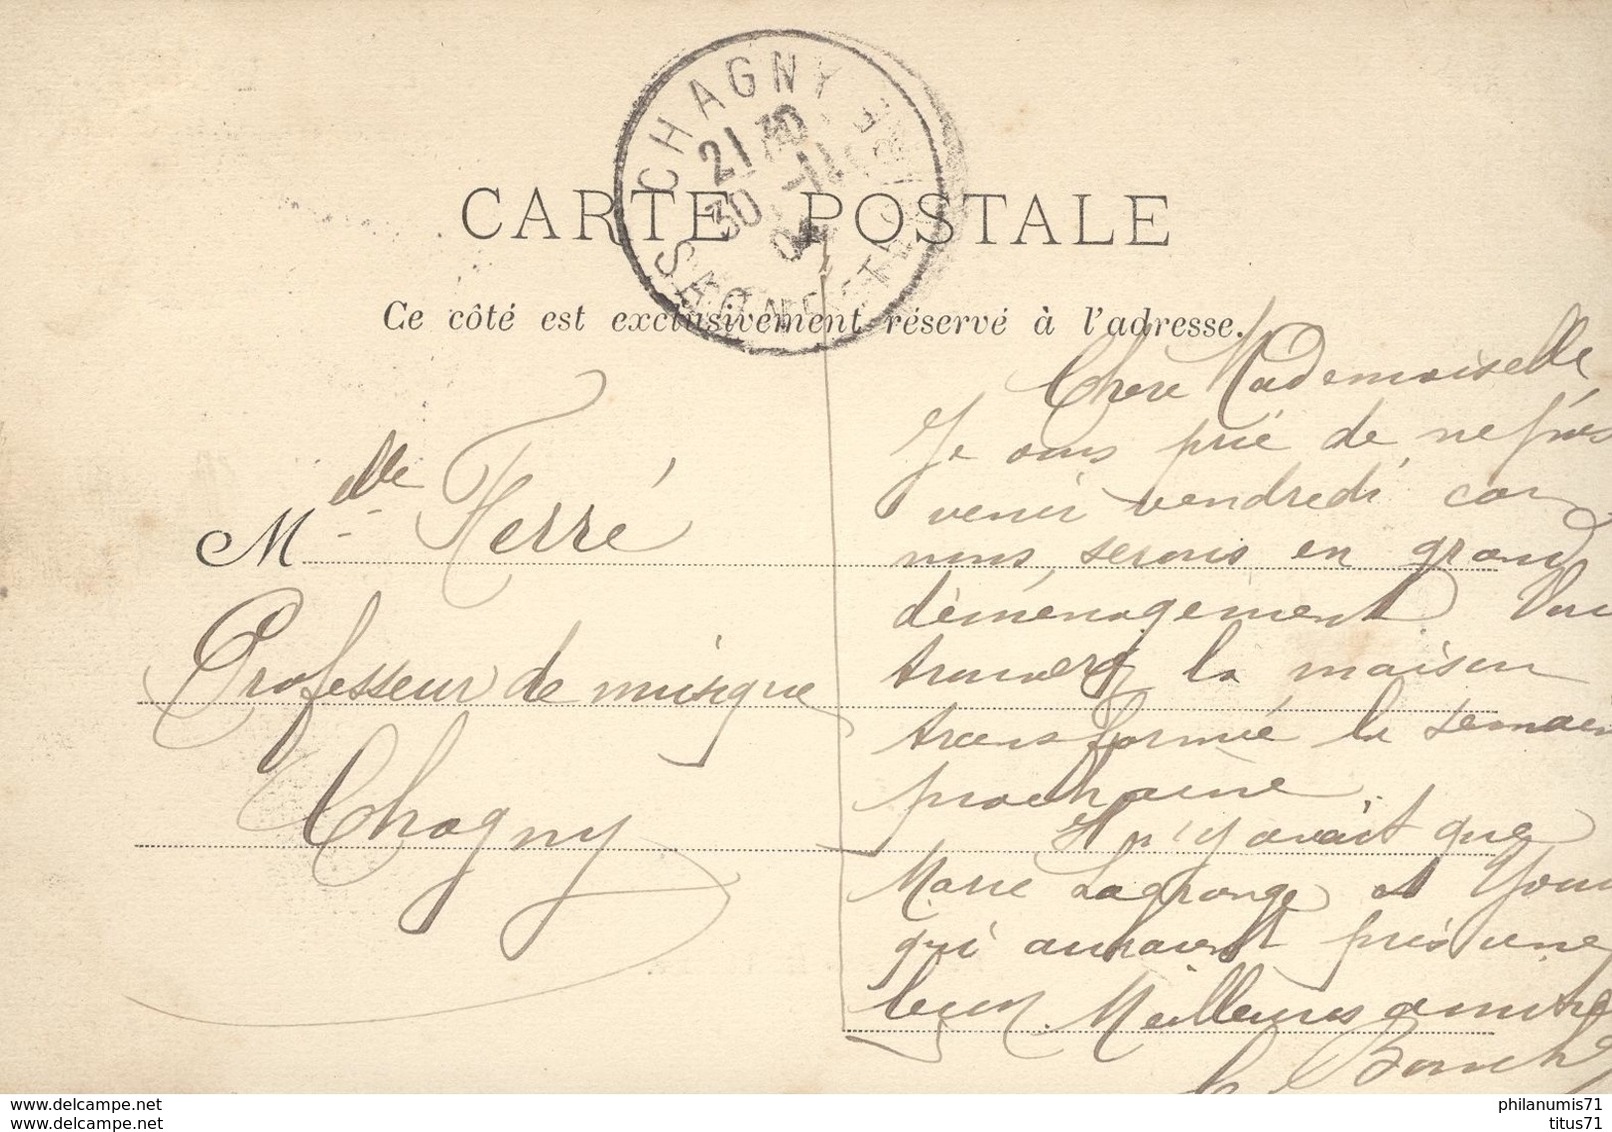 CHAGNY
21 30
30 -11
04
SAONE-ET-LOIRE
CARTE POSTALE
Ce côté est exclusivement réservé à l'adresse.
Mlle Ferré
Professeur de musique
Chagny
Chere Mademoiselle
Je vous prie de ne pas
venir vendredi car
nous serons en grand
déménagement Vous
trouverez la maison
transformée la semaine
prochaine.
Il n'y avait que
Marie Lagrange et
qui auraient pris une
leçon. Meilleures amitiés
philanumis71
titus71
philanumis71
titus71